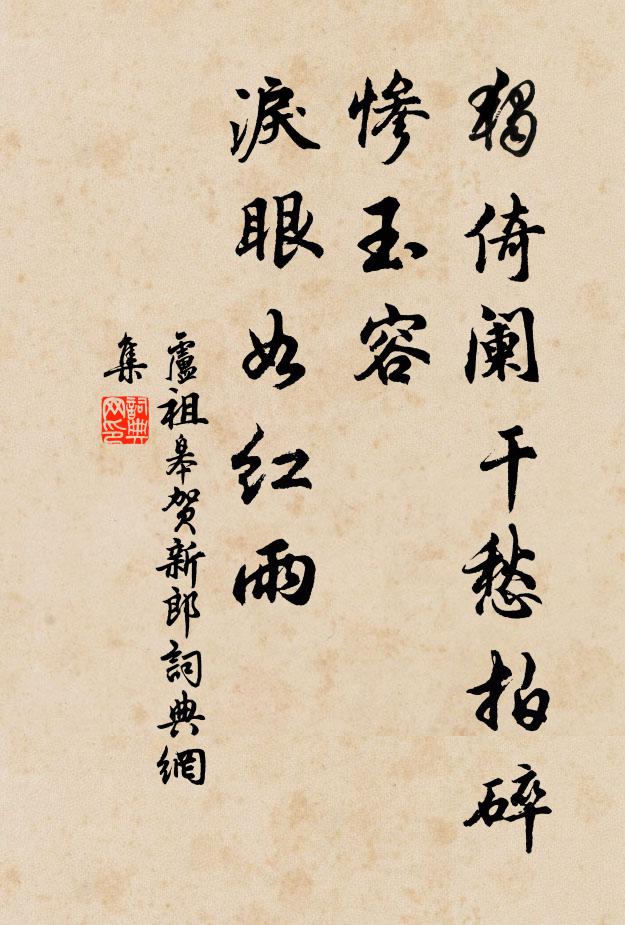 獨倚阑干愁拍碎
慘玉容
淚眼如红雨
盧祖皋贺新郎詞典網
集
詞典
网印